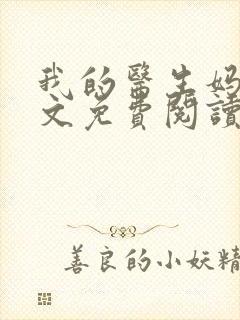 我的醫生媽
文免費閱讀
善良的小妖精